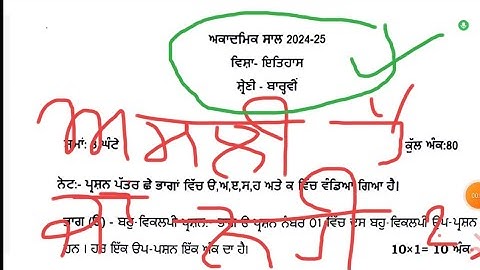 ਅਕਾਦਮਿਕ ਸਾਲ 2024-25
ਵਿਸ਼ਾ- ਇਤਿਹਾਸ
ਸ਼੍ਰੇਣੀ - ਬਾਰ੍ਹਵੀਂ
ਅਸਲੀ
ਸਮਾਂ: 3 ਘੰਟੇ ਕੁੱਲ ਅੰਕ:80
ਨੋਟ:- ਪ੍ਰਸ਼ਨ ਪੱਤਰ ਛੇ ਭਾਗਾਂ ਵਿੱਚ ੳ,ਅ,ੲ,ਸ,ਹ ਅਤੇ ਕ ਵਿੱਚ ਵੰਡਿਆ ਗਿਆ ਹੈ।
ਭਾਗ (ੳ) - ਬਹੁ-ਵਿਕਲਪੀ ਪ੍ਰਸ਼ਨ: ਭਾਗ ੳ ਪ੍ਰਸ਼ਨ ਨੰਬਰ 01 ਵਿੱਚ ਦਸ ਬਹੁ-ਵਿਕਲਪੀ ਉਪ-ਪ੍ਰਸ਼ਨ
ਹਨ। ਹਰ ਇੱਕ ਉਪ-ਪਸ਼ਨ ਇੱਕ ਅੰਕ ਦਾ ਹੈ। 10×1= 10 ਅੰਕ